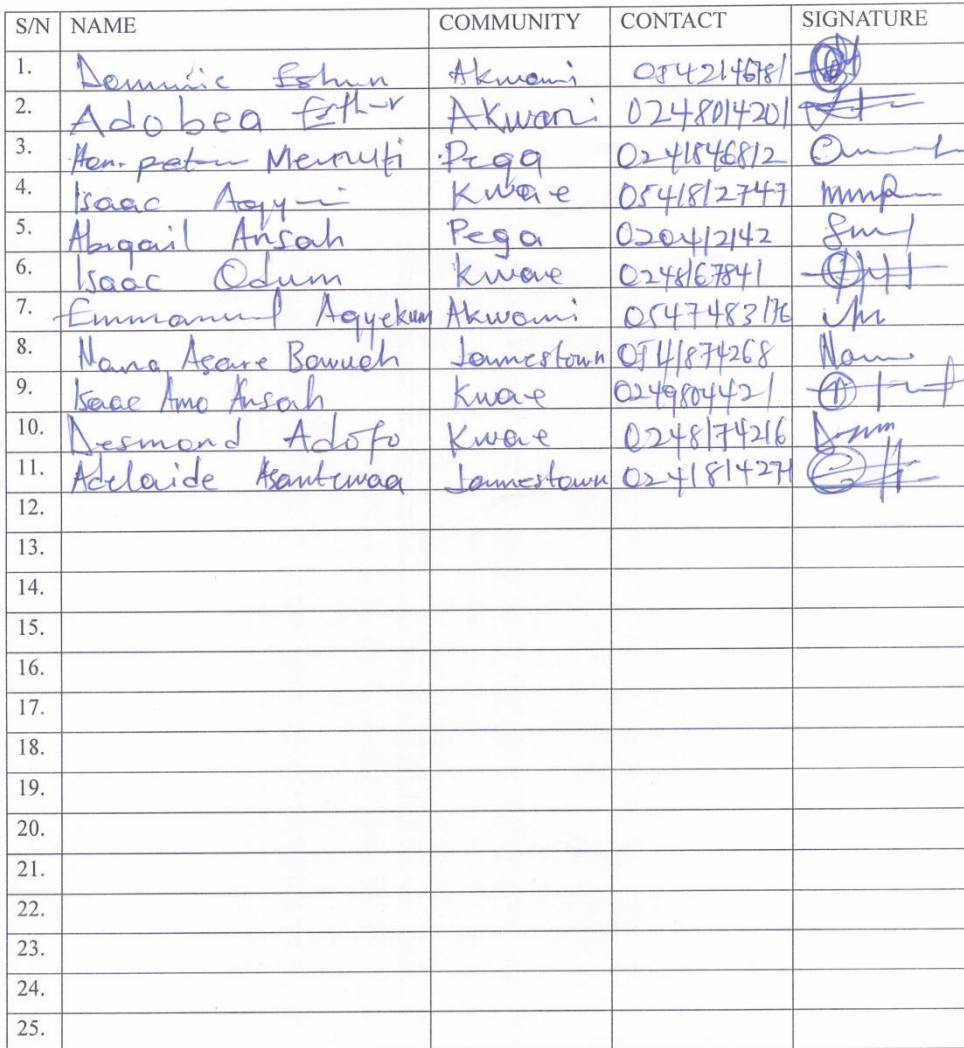 S/N NAME COMMUNITY CONTACT SIGNATURE
1. Dominic Eshun Akwami 0542146781
2. Adobea Esther Akwani 0248014201
3. Hon. peter Pega 0241846812
4. Isaac Kwae 0541812747
5. Abigail Ansah Pega 020412142
6. Isaac Odum Kwae 0248167841
7. Emmanuel Agyekum Akwami 0547483176
8. Nana Asare Bowuah Jamestown 0541874268
9. Isaac Amo Ansah Kwae 0249804421
10. Desmond Adofo Kwae 0248174216
11. Adelaide Asantewaa Jamestown 0241814271
12.
13.
14.
15.
16.
17.
18.
19.
20.
21.
22.
23.
24.
25.